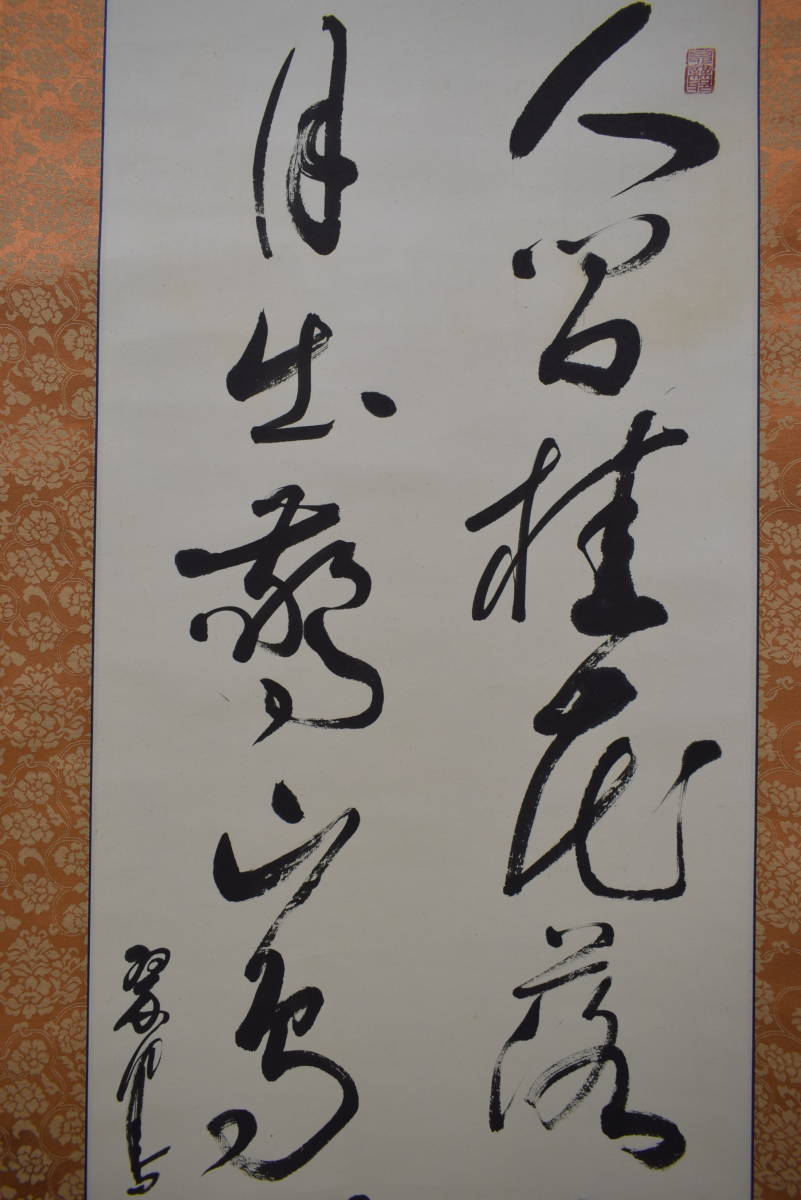 人間桂花落
月出驚山鳥